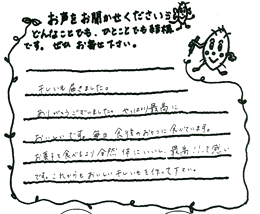 お声をお聞かせください
どんなことでも、ひとことでも結構
です。ぜひ お寄せ下さい。
干しいも届きました。
ありがとうございました。やっぱり最高に
おいしいです。毎日 食後のおやつに食べています。
お菓子を食べるより 全然 体にいいし、最高!!って感じ
です。これからもおいしい干しいもを作って下さい。